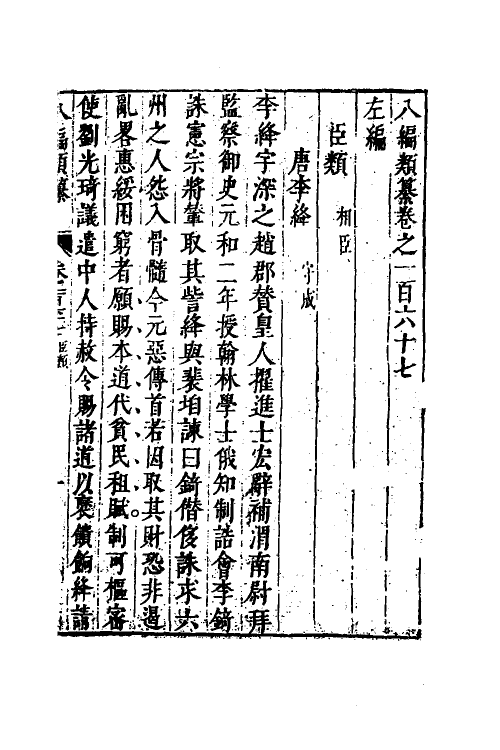 八編類纂卷之一百六十七
左編
臣類 相臣
唐李絳 守成
李絳字深之趙郡贊皇人擢進士宏辭補渭南尉拜
監察御史元和二年授翰林學士俄知制誥會李錡
誅憲宗將輦取其貲絳與裴垍諫曰錡僭侈誅求六
州之人怨入骨髓今元惡傳首若因取其財恐非遏
亂畧惠綏困窮者願賜本道代貧民租賦制可樞密
使劉光琦議遣中人持赦令賜諸道以裒饋餉絳請
八編類纂